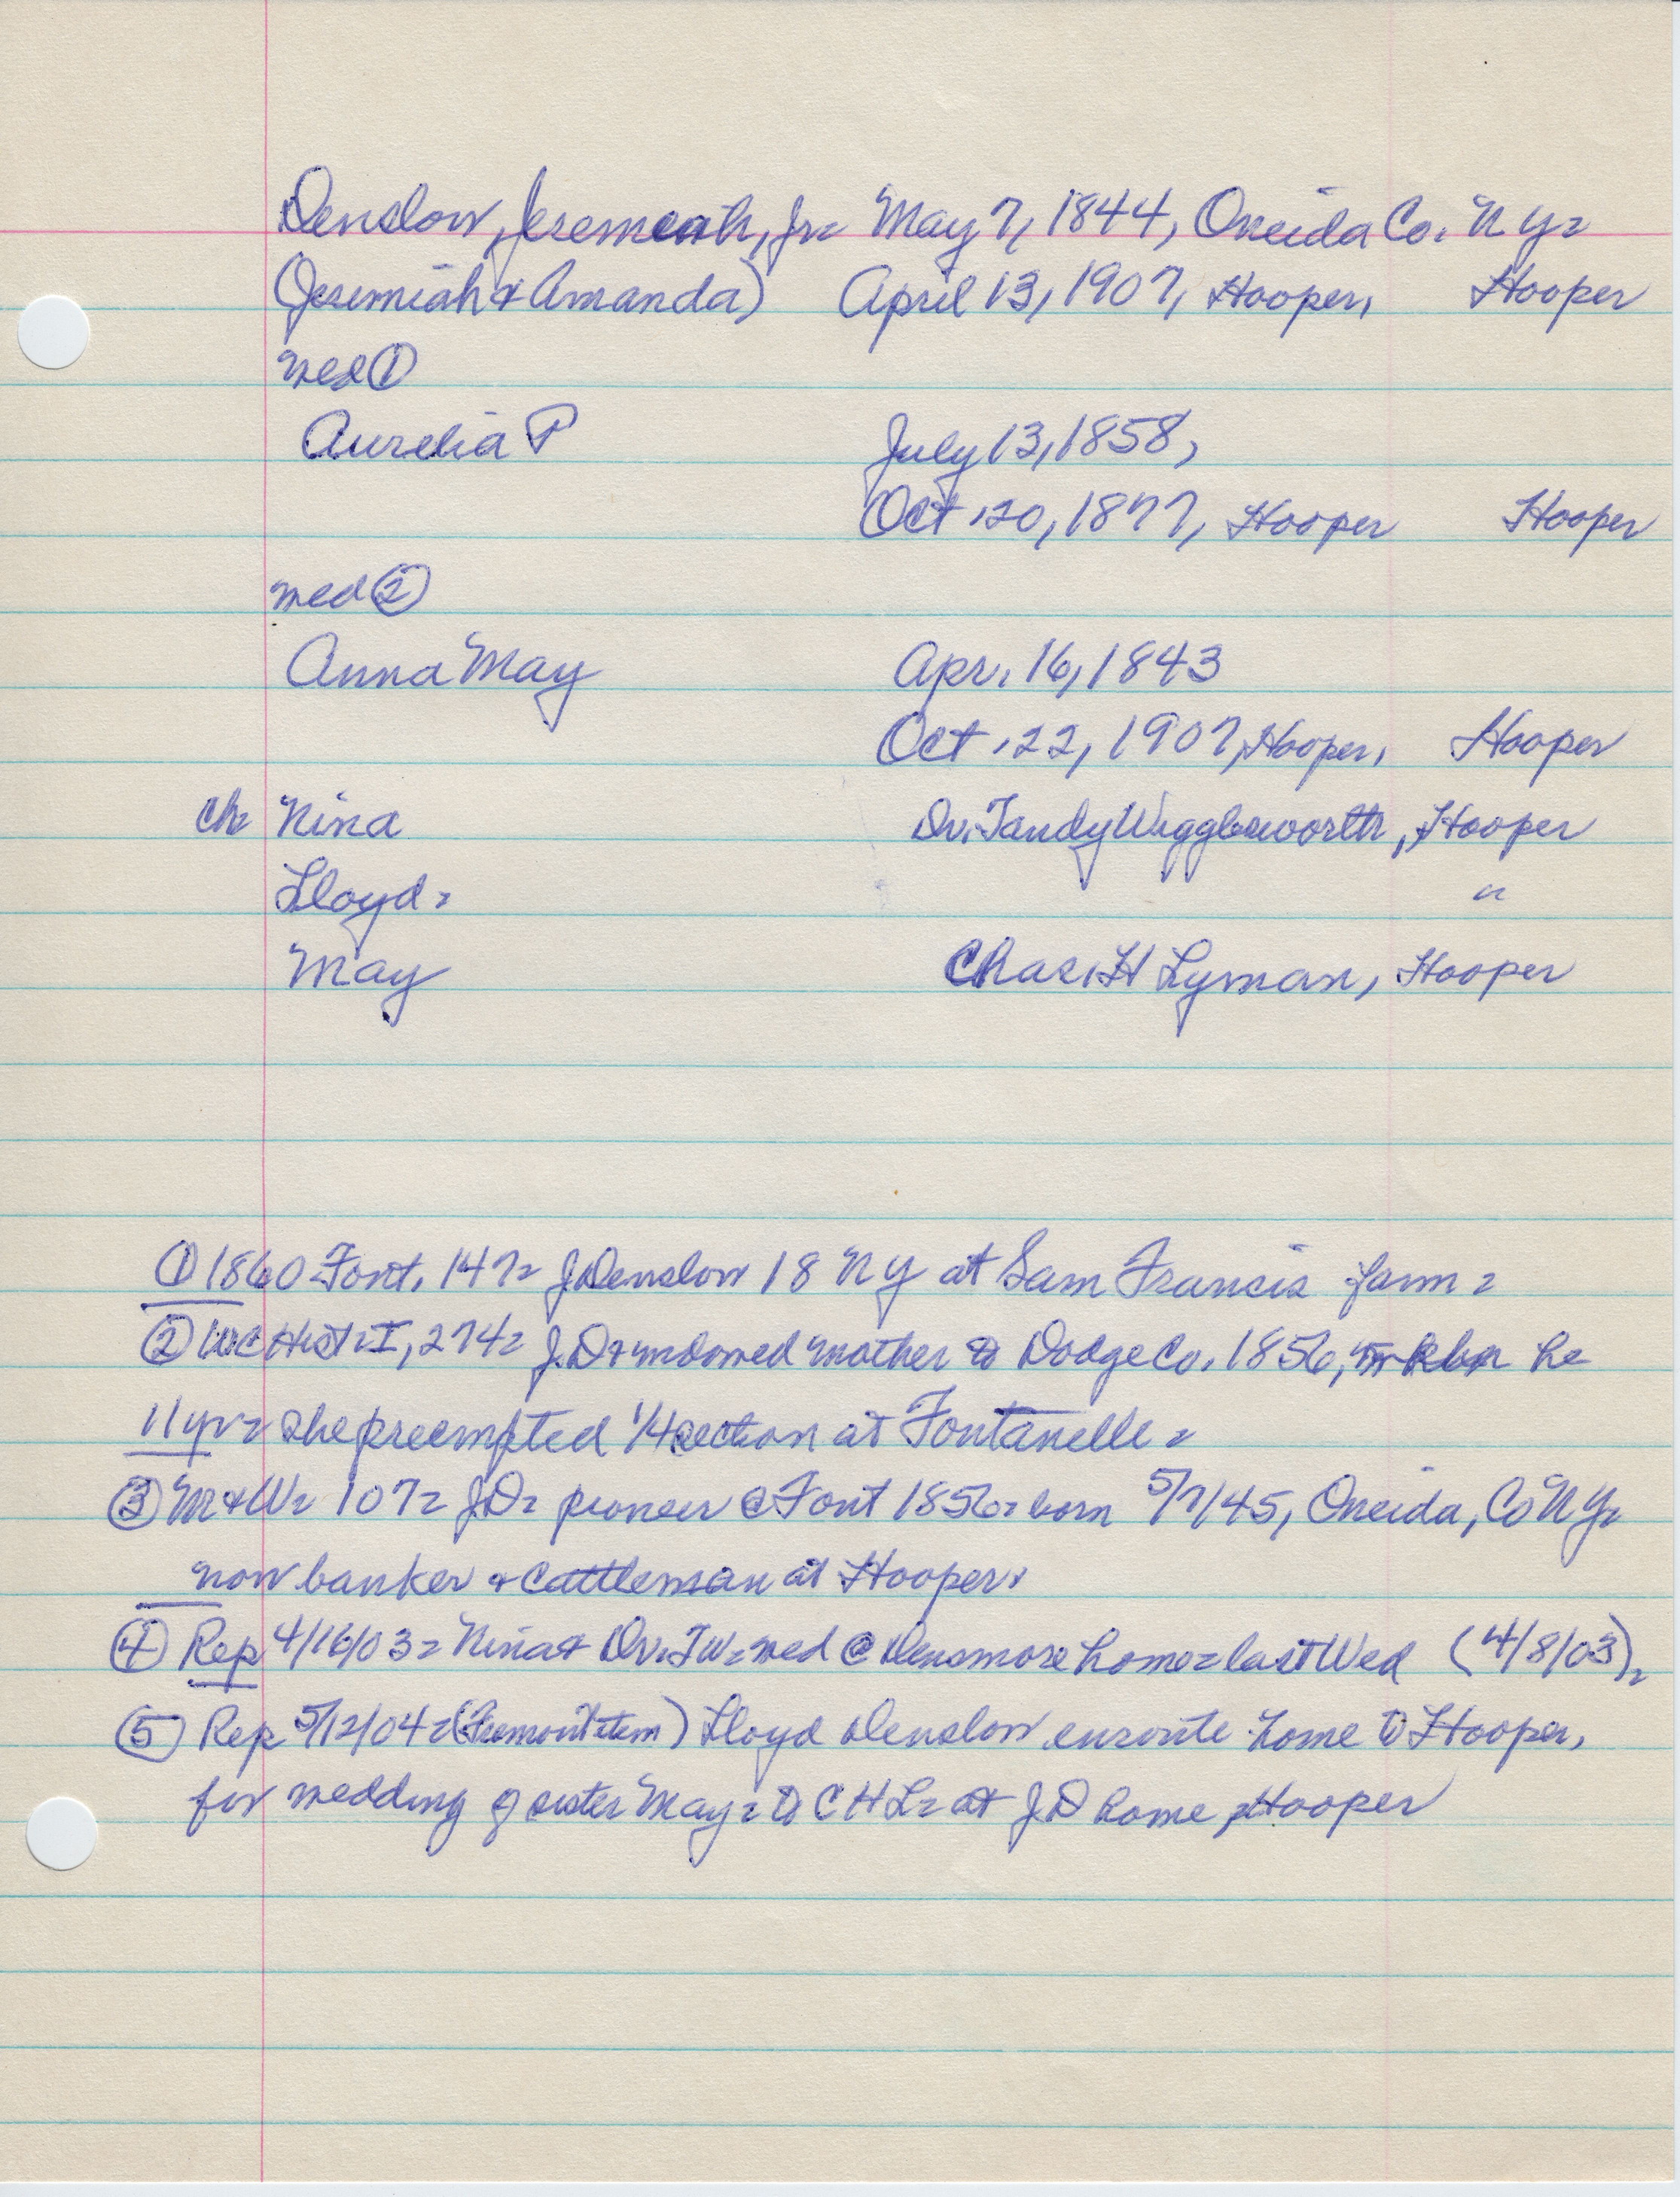 Denslow, Jeremiah, Jr= May 7, 1844, Oneida Co. NY=
(Jeremiah & Amanda) April 13, 1907, Hooper, Hooper
wed ①
Aurelia P July 13, 1858,
Oct. 20, 1877, Hooper Hooper
wed ②
Anna May Apr. 16, 1843
Oct. 22, 1907, Hooper, Hooper
ch= Nina Dr. Tandy Wigglesworth, Hooper
Lloyd= "
May Chas. H Lyman, Hooper
① 1860 Font. 147= J Denslow 18 NY at Sam Francis farm=
② Hist=I, 274= J.D & widowed mother to Dodge Co. 1856, he
11 yr= she preempted 1/4 section at Fontanelle=
③ M&W= 107= J.D= pioneer @ Font 1856= born 5/7/45, Oneida, Co NY=
now banker & cattleman at Hooper.
④ Rep 4/16/03= Nina & Dr. TW= wed @ Densmore home= last Wed (4/8/03)=
⑤ Rep 5/12/04= (Fremont item) Lloyd Denslow enroute home to Hooper,
for wedding of sister May= to C H L= at J D home, Hooper